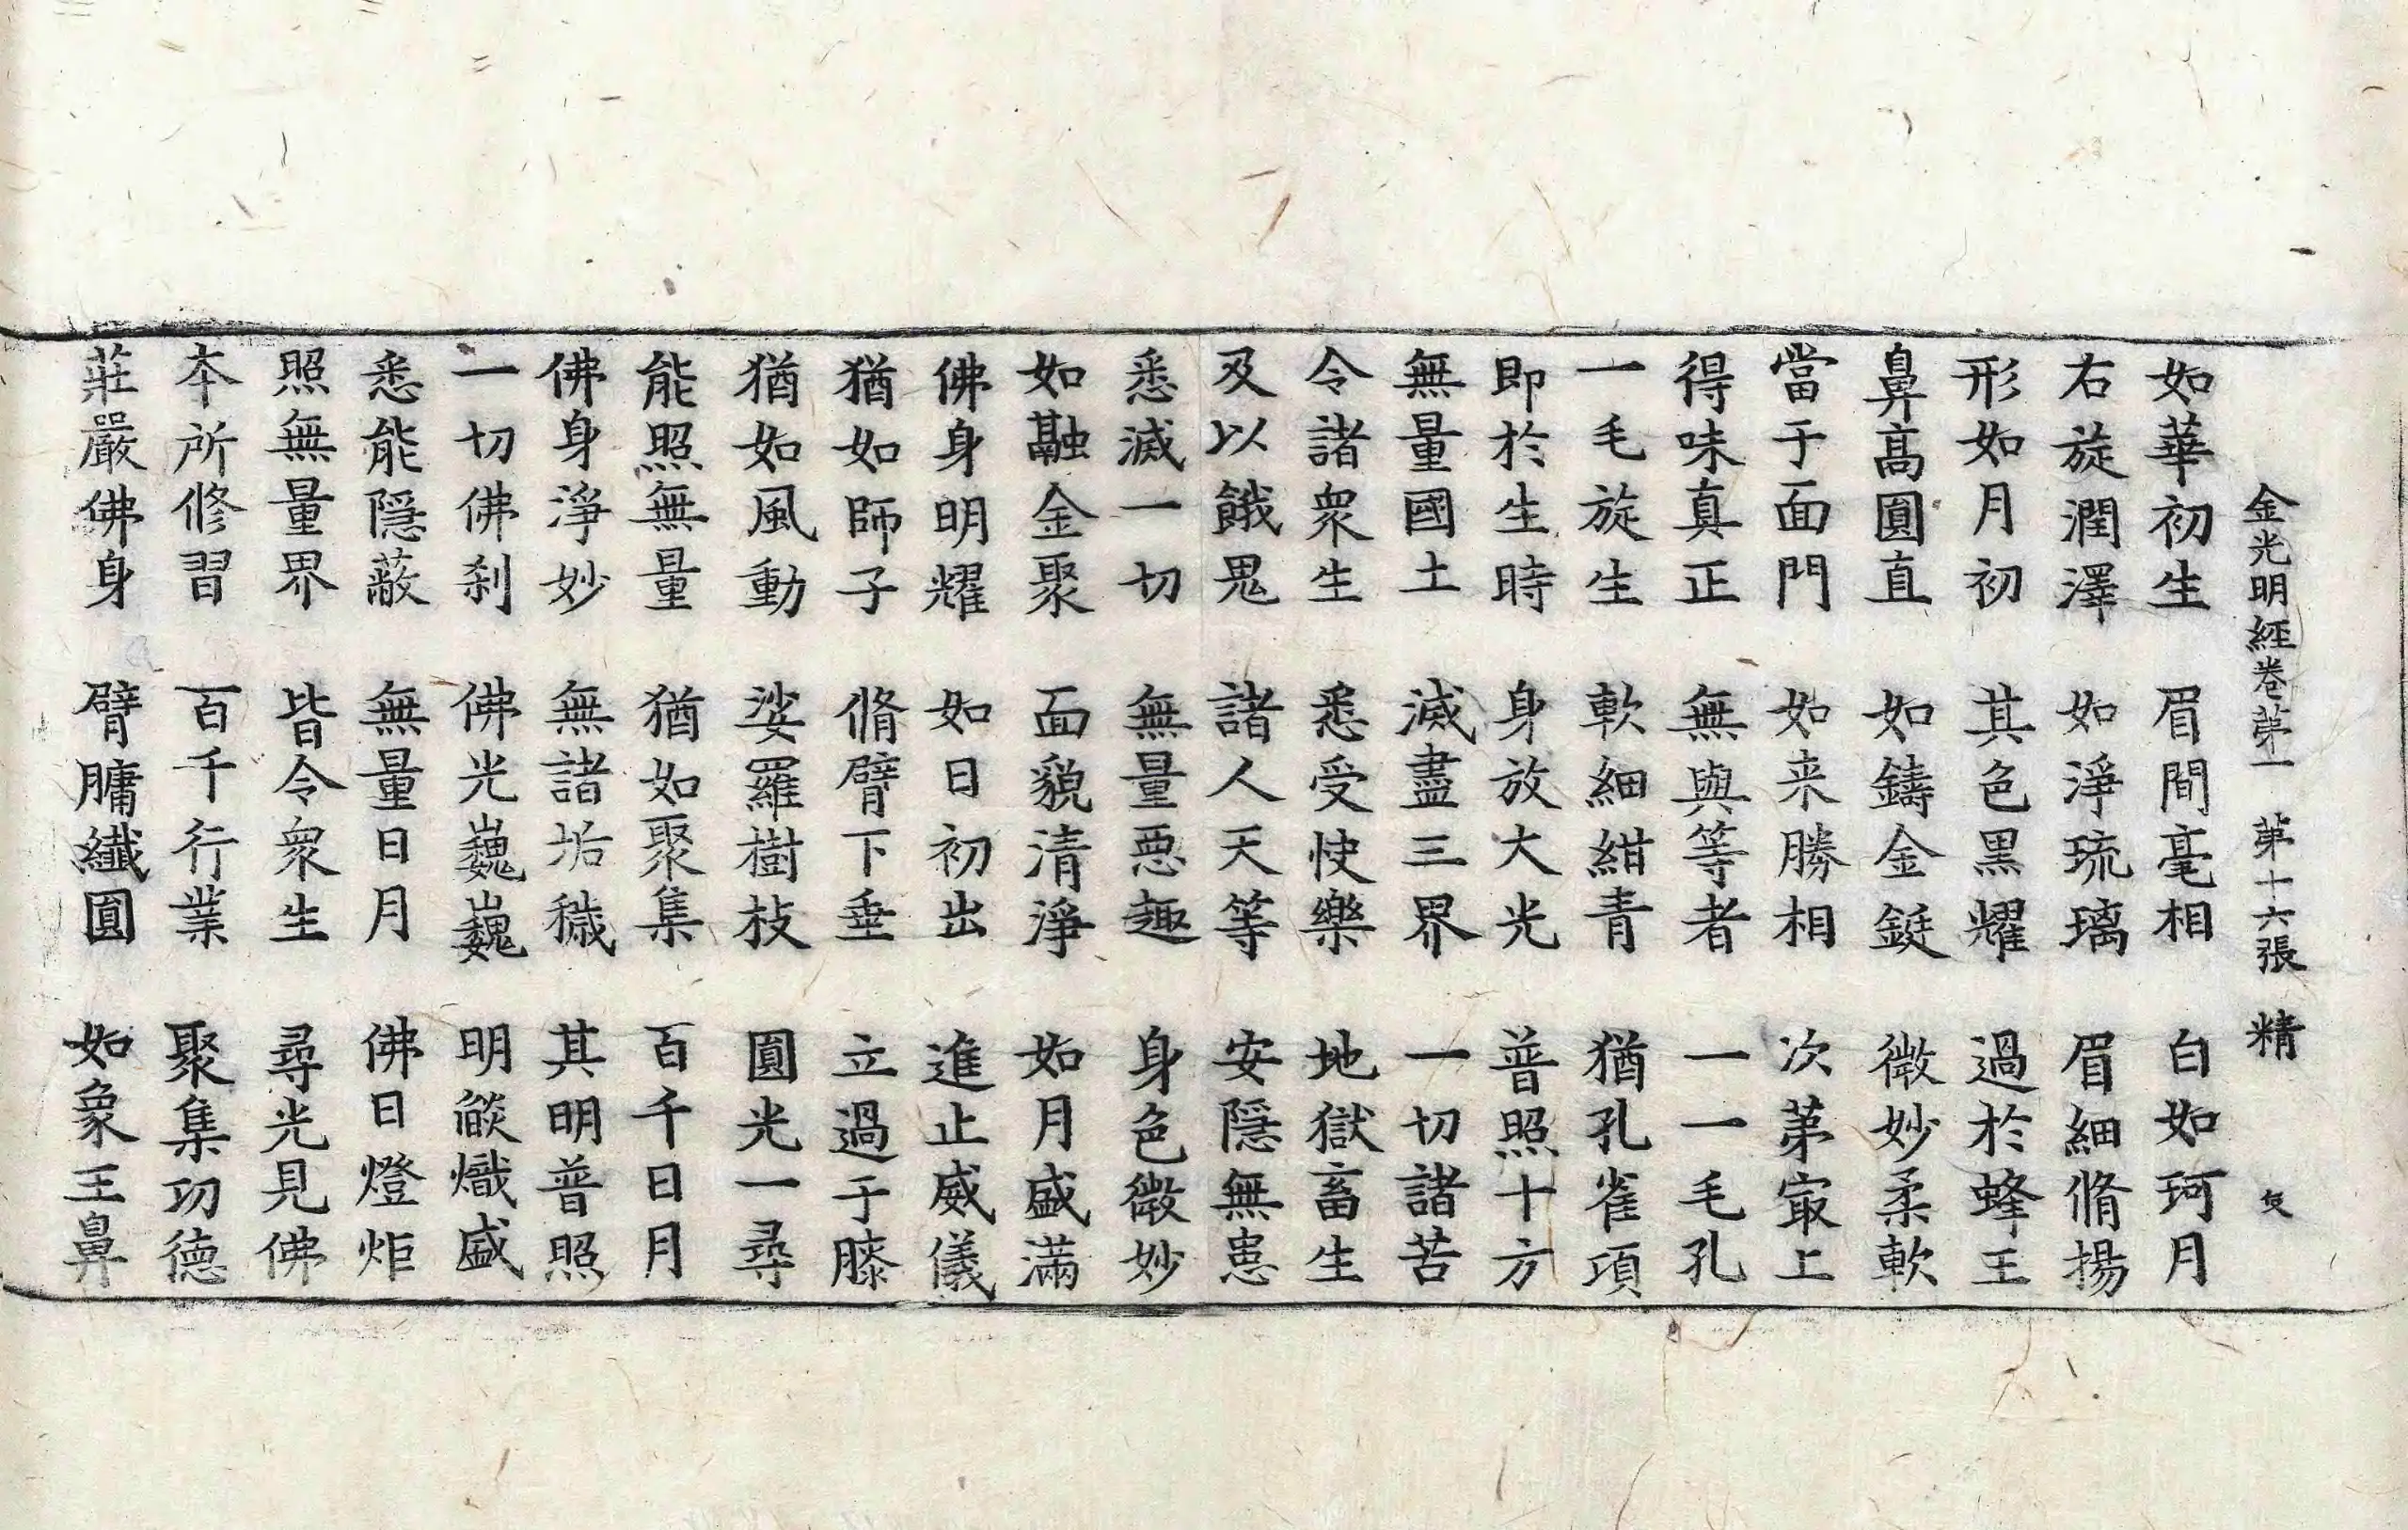 金光明經卷第一 第十六張 精
如華初生 眉間毫相 白如珂月
右旋潤澤 如淨琉璃 眉細脩揚
形如月初 其色黑耀 過於蜂王
鼻高圓直 如鑄金鋌 微妙柔軟
當于面門 如来勝相 次第㝡上
得味真正 無與等者 一一毛孔
一毛旋生 軟細紺青 猶孔雀項
即於生時 身放大光 普照十方
無量國土 滅盡三界 一切諸苦
令諸衆生 悉受快樂 地獄畜生
及以餓鬼 諸人天等 安隱無患
悉滅一切 無量惡趣 身色微妙
如融金聚 面貌清淨 如月盛滿
佛身明耀 如日初出 進止威儀
猶如師子 脩臂下垂 立過于膝
猶如風動 娑羅樹枝 圓光一尋
能照無量 猶如聚集 百千日月
佛身淨妙 無諸垢穢 其明普照
一切佛刹 佛光巍巍 明燄熾盛
悉能隱蔽 無量日月 佛日燈炬
照無量界 皆令衆生 尋光見佛
本所修習 百千行業 聚集功德
莊嚴佛身 臂𦟛纖圓 如象王鼻